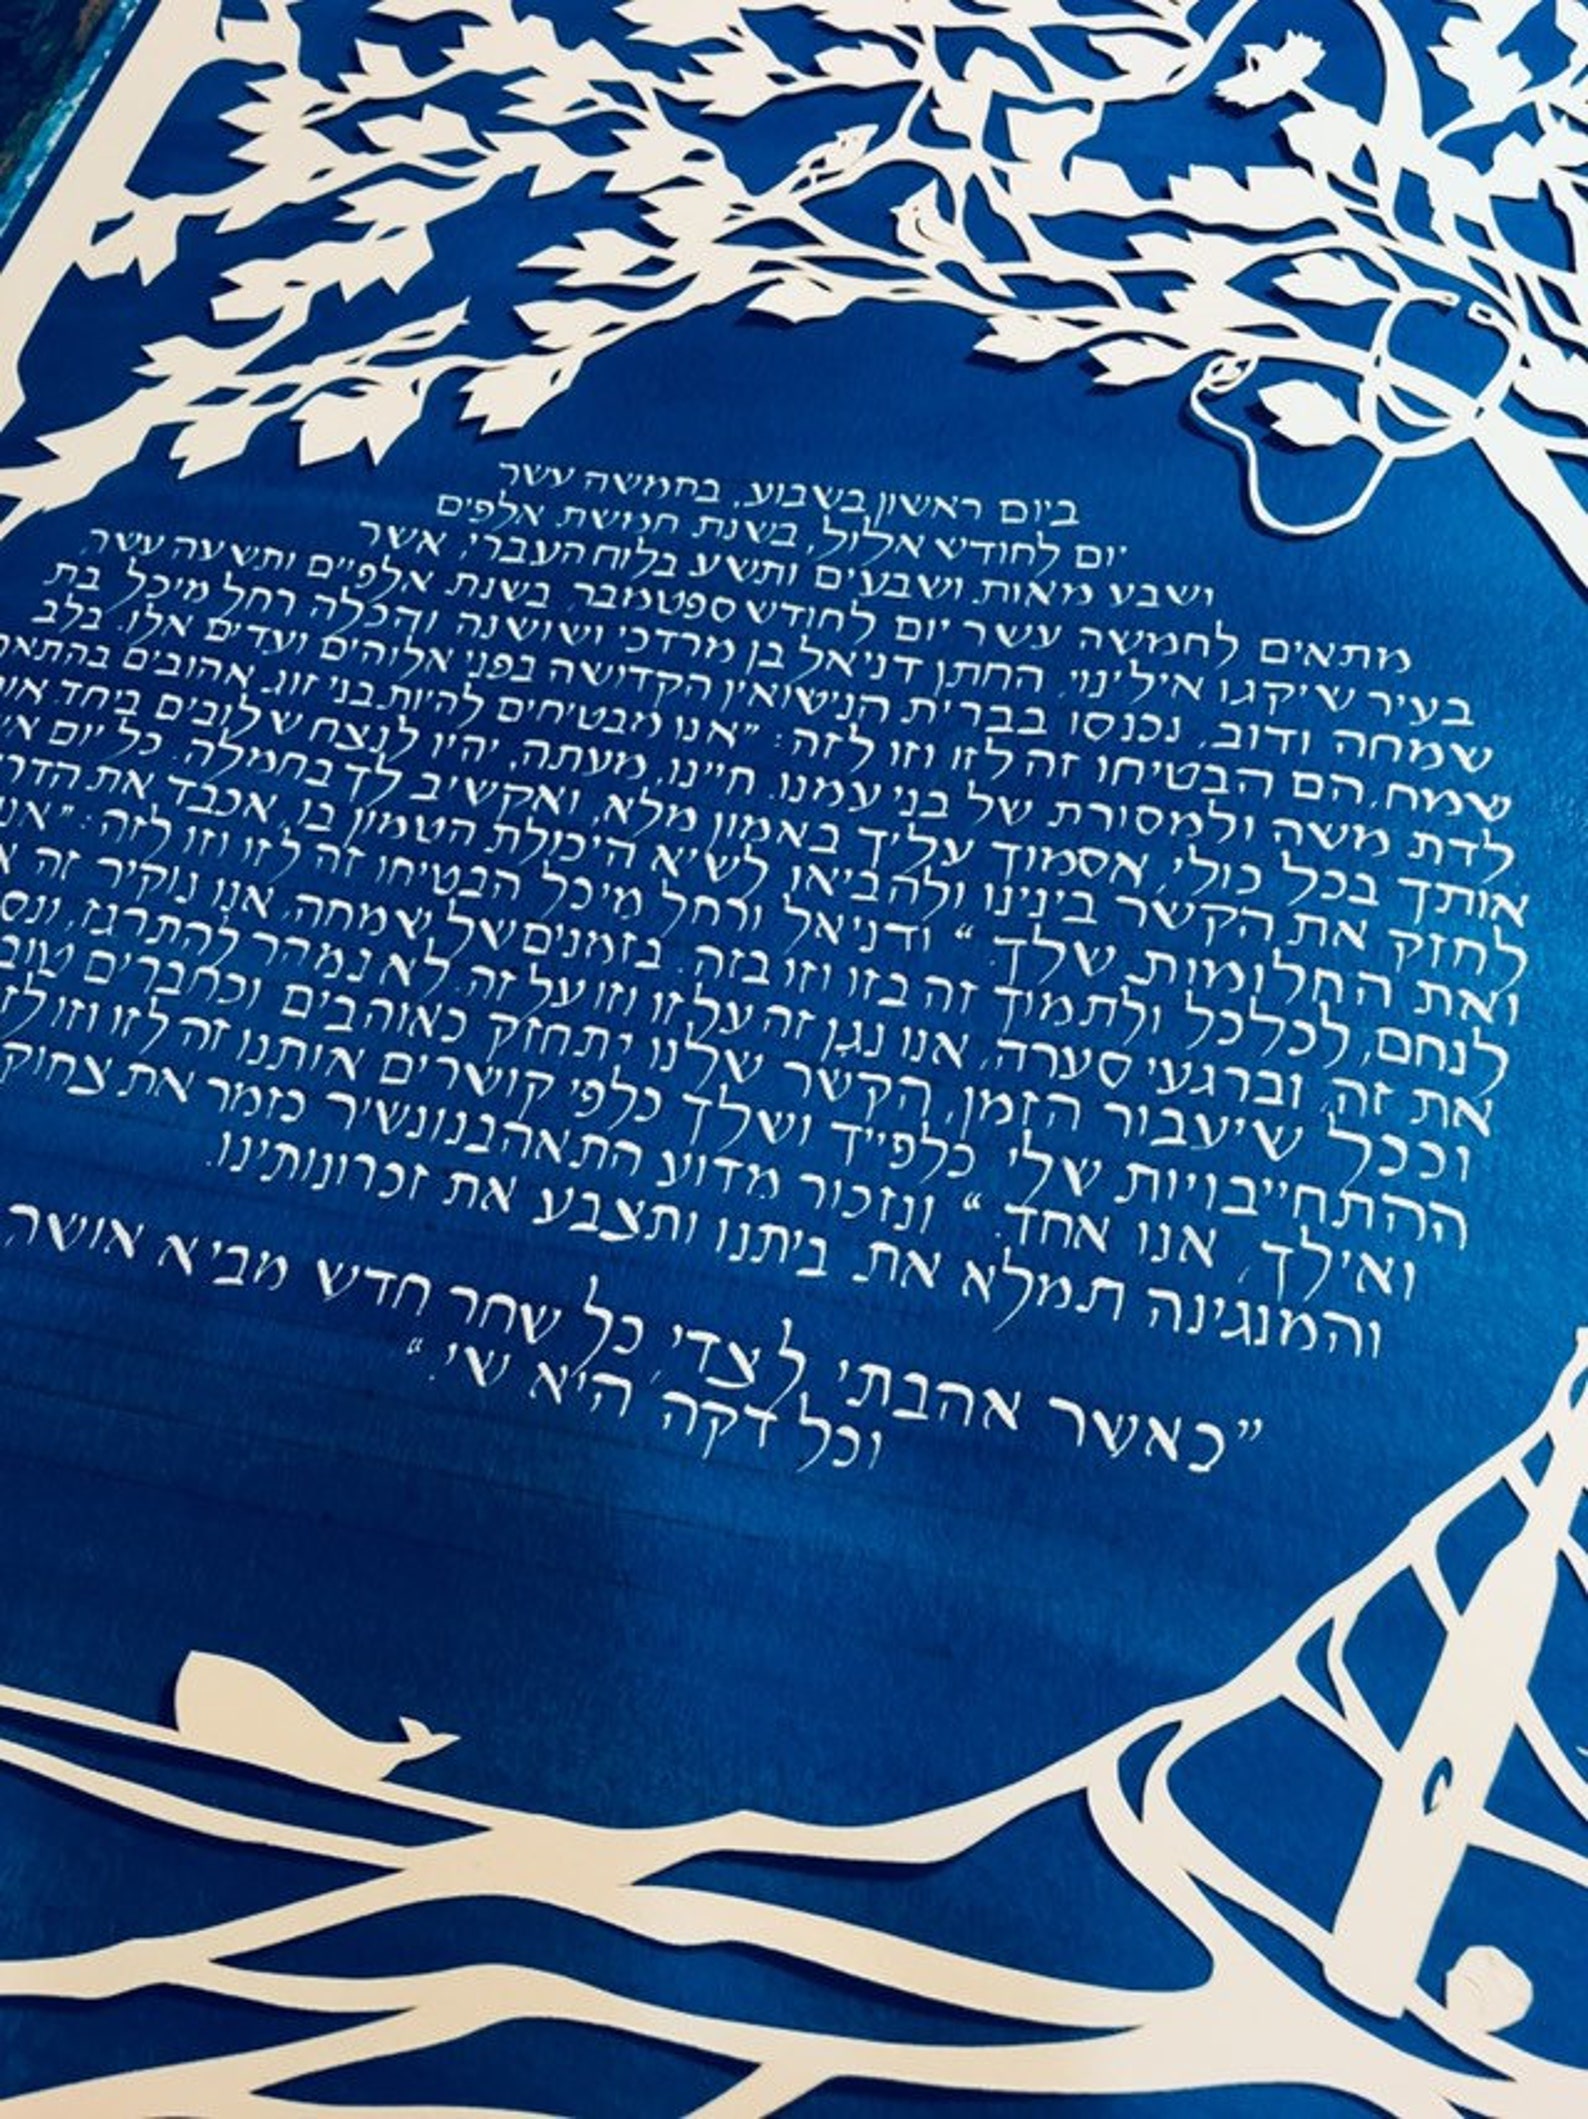 ביום ראשון בשבוע, בחמשה עשר
יום לחודש אלול, בשנת חמשת אלפים
ושבע מאות ושבעים ותשע בלוח העברי, אשר
מתאים לחמשה עשר יום לחודש ספטמבר, בשנת אלפיים ותשעה עשר,
בעיר שיקגו אילינוי, החתן דניאל בן מרדכי ושושנה והכלה רחל מיכל בת
שמחה ודוב, נכנסו בברית הנישואין הקדושה בפני אלוהים ועדים אלו. בלב
שמח, הם הבטיחו זה לזו וזו לזה: "אנו מבטיחים להיות בני זוג אהובים בהתאם
לדת משה ולמסורת של בני עמנו. חיינו, מעתה, יהיו לנצח שלובים ביחד.
אותך בכל כולי, אסמוך עליך באמון מלא, ואקשיב לך בחמלה. כל יום
לחזק את הקשר בינינו ולהביאו לשיא היכולת הטמון בו, אכבד את
ואת החלומות שלך." ודניאל ורחל מיכל הבטיחו זה לזו וזו לזה: "אנו
לנחם, לכלכל ולתמוד זה בזו וזו בזה. בזמנים של שמחה, אנו נוקיר זה
את זה, וברגעי סערה, אנו נגן זה על זו וזו על זה. לא נמהר להתרגז,
וככל שיעבור הזמן, הקשר שלנו יתחזק כאוהבים וכחברים
ההתחייבויות שלי כלפייך ושלך כלפי קושרים אותנו זה לזו וזו
ואילך, אנו אחד." ונזכור מדוע התאהבנו ונשיר כזמר את צחוק
והמנגינה תמלא את ביתנו ותצבע את זכרונותינו.
"כאשר אהבתי לצדי, כל שחר חדש מביא אושר,
וכל דקה היא שי."